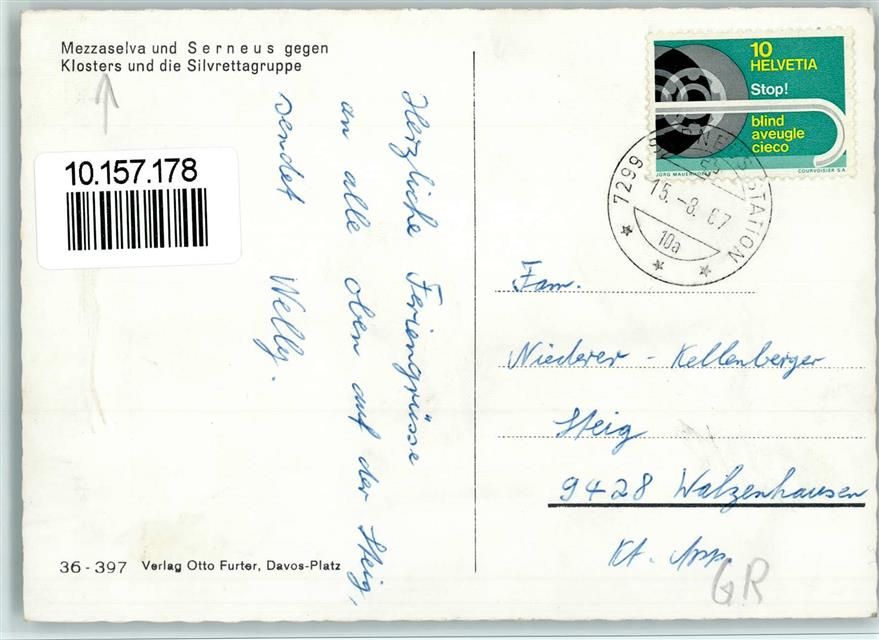 Mezzaselva und Serneus gegen
Klosters und die Silvrettagruppe
10.157.178
Herzliche Feriengrüsse
an alle oben auf der Steig,
sendet Welly.
36-397 Verlag Otto Furter, Davos-Platz
10
HELVETIA
Stop!
blind
aveugle
cieco
JÖRG MAUERHOFER
COURVOISIER S.A.
7299 SERNEUS STATION
15.-8.67
10a
Fam.
Niederer - Kellenberger
Steig
9428 Walzenhausen
Kt. App.
GR